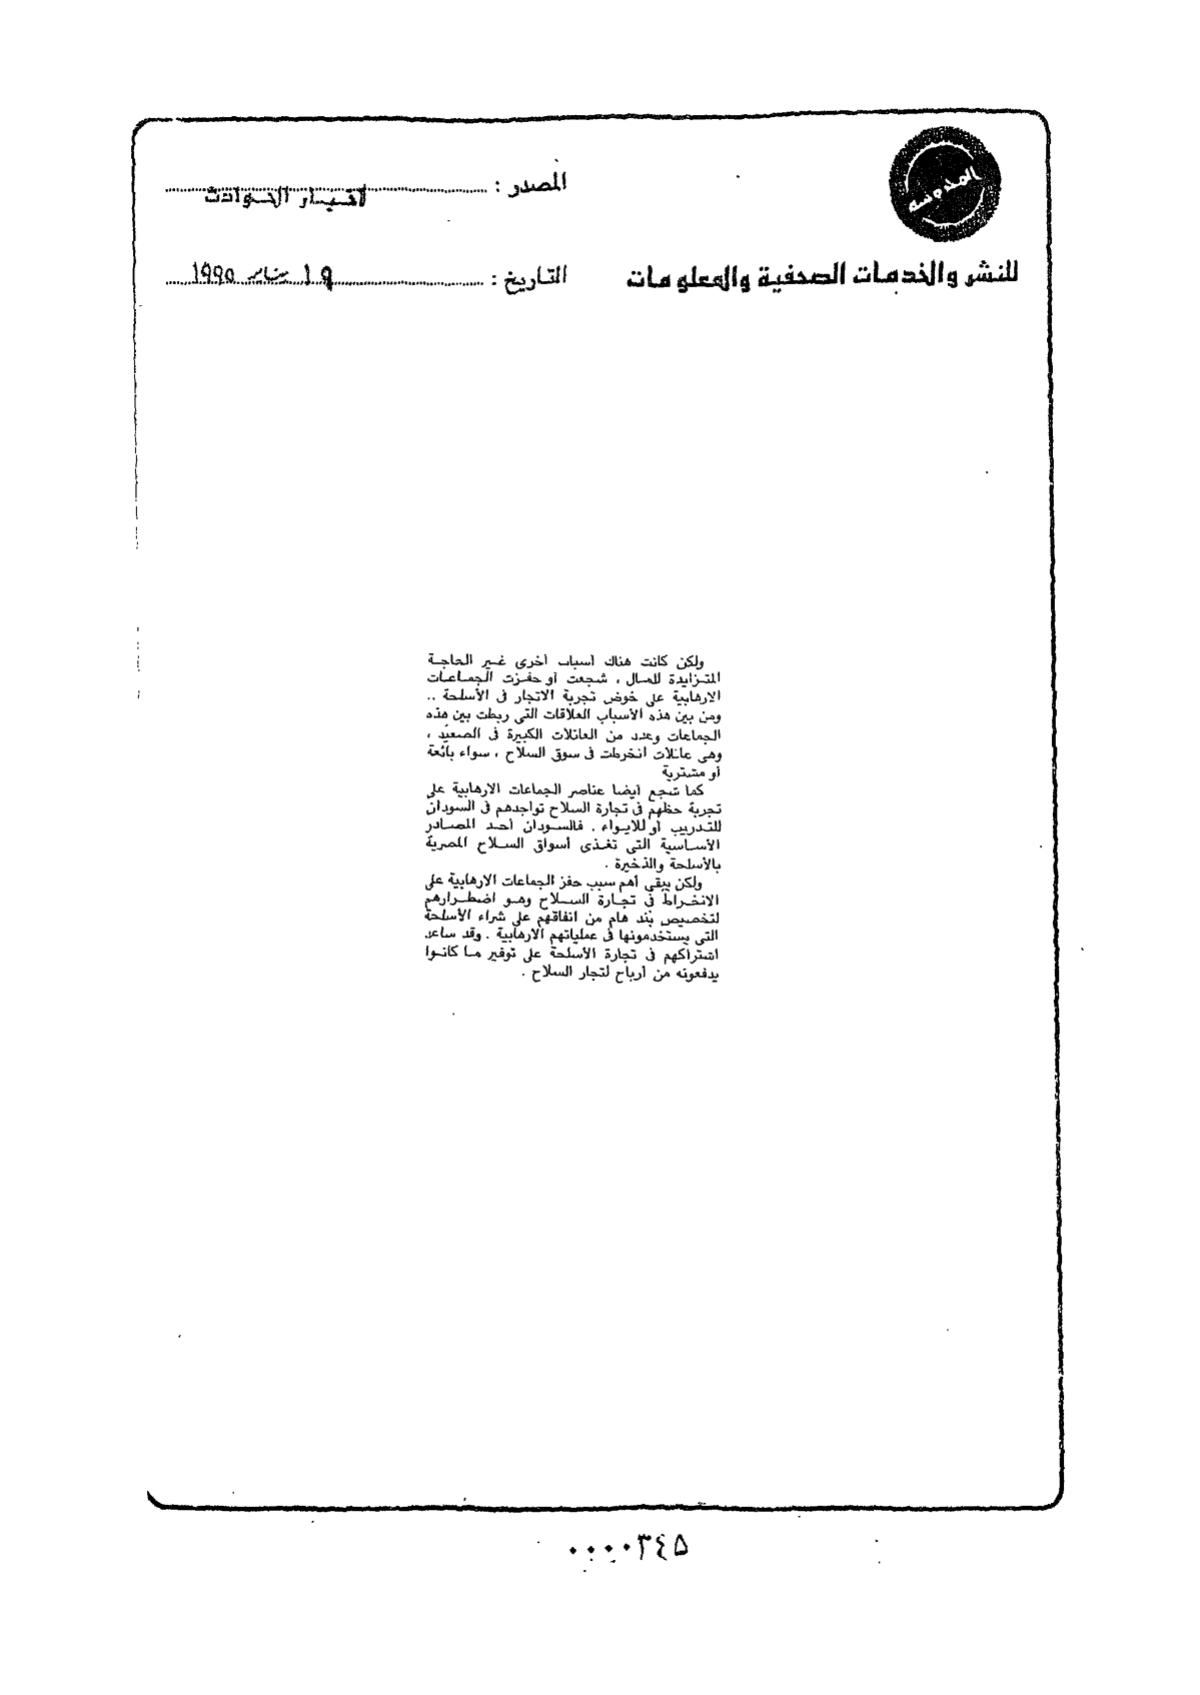 المدوسه
المصدر : اخبار الحوادث
للنشر والخدمات الصحفية والمعلومات
التاريخ : ١٩ يناير ١٩٩٥
ولكن كانت هناك أسباب أخرى غير الحاجة
المتزايدة للمال ، شجعت أو حفزت الجماعات
الارهابية على خوض تجربة الاتجار فى الأسلحة ..
ومن بين هذه الأسباب العلاقات التى ربطت بين هذه
الجماعات وعدد من العائلات الكبيرة فى الصعيد ،
وهى عائلات انخرطت فى سوق السلاح ، سواء بائعة
أو مشترية
كما شجع أيضا عناصر الجماعات الارهابية على
تجربة حظهم فى تجارة السلاح تواجدهم فى السودان
للتدريب أو للايواء . فالسودان أحد المصادر
الأساسية التى تغذى أسواق السلاح المصرية
بالأسلحة والذخيرة .
ولكن يبقى أهم سبب حفز الجماعات الارهابية على
الانخراط فى تجارة السلاح وهو اضطرارهم
لتخصيص بند هام من انفاقهم على شراء الأسلحة
التى يستخدمونها فى عملياتهم الارهابية . وقد ساعد
اشتراكهم فى تجارة الأسلحة على توفير ما كانوا
يدفعونه من أرباح لتجار السلاح .
٠٠٠٠٣٤٥